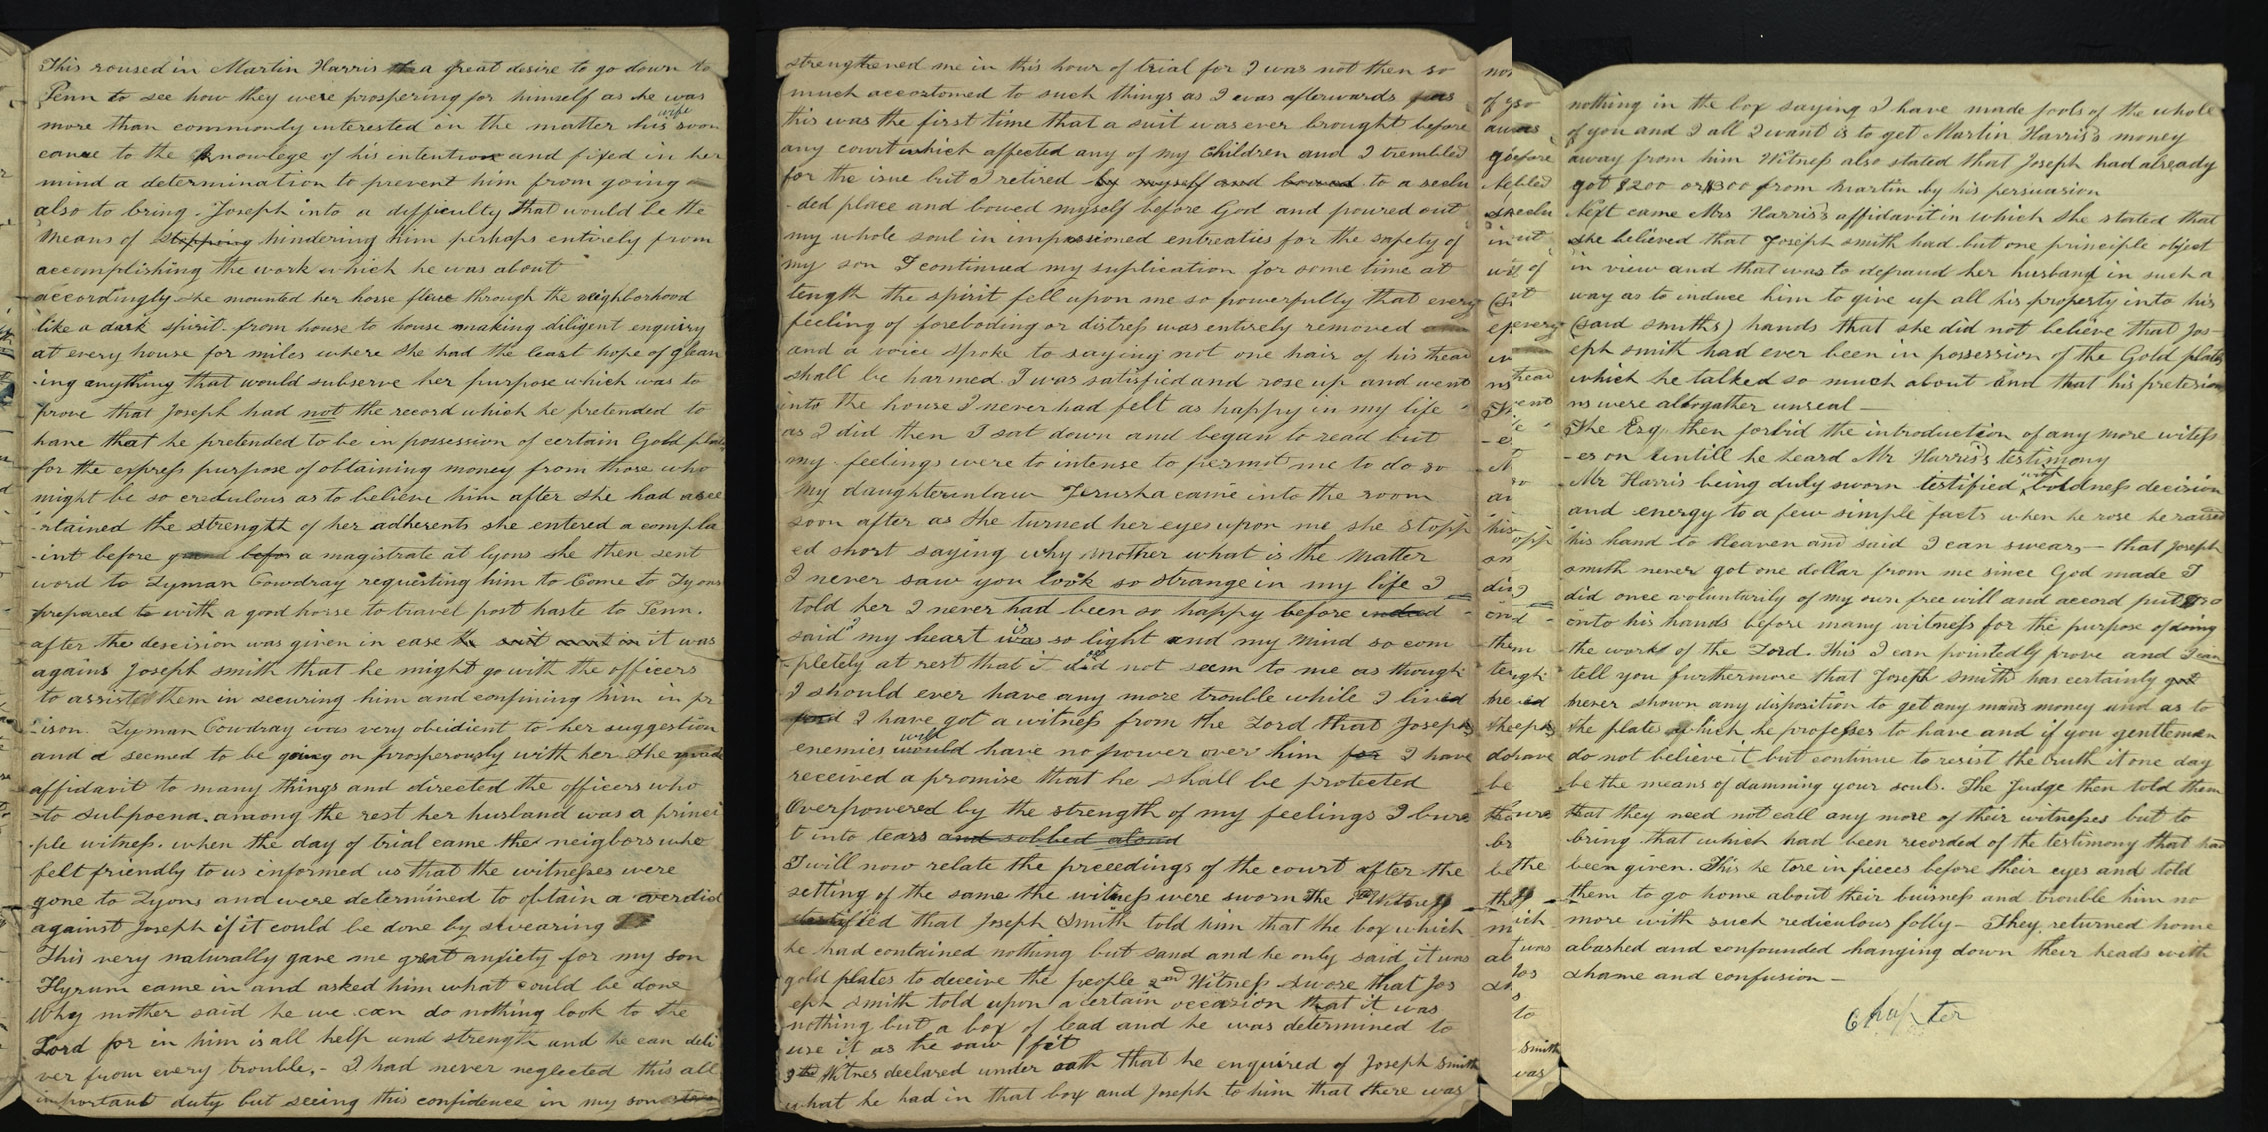 This roused in Martin Harris the a great desire to go down to
Penn to see how they were prospering for himself as he was
more than commonly interested in the matter his wife soon
came to the knowlege of his intention and fixed in her
mind a determination to prevent him from going
also to bring Joseph into a difficulty that would be the
means of stopping hindering him perhaps entirely from
accomplishing the work which he was about
accordingly she mounted her horse flew through the neighborhood
like a dark spirit from house to house making diligent enquiry
at every house for miles where she had the least hope of glean
-ing anything that would subserve her purpose which was to
prove that Joseph had not the record which he pretended to
have that he pretended to be in possession of certain Gold plate
for the express purpose of obtaining money from those who
might be so credulous as to believe him after she had asce
-rtained the strenght of her adherents she entered a compla
-int before befor a magistrate at lyons she then sent
word to Lyman Cowdray requesting him to Come to Lyons
prepared to with a good horse to travel post haste to Penn.
after the descision was given in case the suit went in it was
agains Joseph smith that he might go with the officers
to assist them in securing him and confining him in pr
-ison. Lyman Cowdray was very obidient to her suggestion
and d seemed to be going on prosperously with her. She made
affidavit to many things and directed the officers who
to subpoena. among the rest her husband was a princi
-ple witness. when the day of trial came the neigbors who
felt friendly to us informed us that the witnesses were
gone to Lyons and were determined to obtain a verdid
against Joseph if it could be done by swearing
This very naturally gave me great anxiety for my son
Hyrum came in and asked him what could be done
Why mother said he we can do nothing look to the
Lord for in him is all help and strength and he can deli
ver from every trouble.- I had never neglected this all
important duty but seeing this confidence in my son
strengthened me in this hour of trial for I was not then so
much accostomed to such things as I was afterwards
this was the first time that a suit was ever brought before
any court which affected any of my children and I trembled
for the isue but I retired by myself and bowed to a seclu
-ded place and bowed myself before God and poured out
my whole soul in impassioned entreaties for the safety of
my son I continued my suplication for some time at
length the spirit fell upon me so powerfully that every
feeling of foreboding or distress was entirely removed
and a voice spoke to saying not one hair of his head
shall be harmed. I was satisfied and rose up and went
into the house I never had felt as happy in my life
as I did then I sat down and began to read but
my feelings were to intense to permit me to do so
My daughterinlaw Jerusha came into the room
soon after as she turned her eyes upon me she stopp
ed short saying why mother what is the matter
I never saw you look so strange in my life I
told her I never had been so happy before indeed
said my heart is was so light and my mind so com
-pletely at rest that it did not seem to me as though
I should ever have any more trouble while I lived
said I have got a witness from the Lord that Josephs
enemies will would have no power over him for I have
received a promise that he shall be protected
Overpowered by the strength of my feelings I burs
t into tears and sobbed aloud
I will now relate the preceedings of the court after the
setting of the same the witness were sworn the 1st Witness
testified that Joseph Smith told him that the box which
he had contained nothing but sand and he only said it was
gold plates to deceive the people 2nd Witness swore that Jos
eph Smith told upon a certain occasion that it was
nothing but a box of lead and he was determined to
use it as he saw fit
3rd Witnes declared under oath that he enquired of Joseph Smith
what he had in that box and Joseph to him that there was
nothing in the box saying I have made fools of the whole
of you and I all I want is to get Martin Harris's money
away from him Witness also stated that Joseph had already
got $200 or $300 from Martin by his persuasion
Next came Mrs Harris's affidavit in which she stated that
she believed that Joseph smith had but one principle object
in view and that was to defraud her husband in such a
way as to induce him to give up all his property into his
(said smiths) hands that she did not believe that Jos-
eph smith had ever been in possession of the Gold plates
which he talked so much about and that his pretesion
ns were altogather unreal—
The Esq. then forbid the introduction of any more witess
-es on untill he heard Mr Harris's testimony
Mr Harris being duly sworn testified with boldness decision
and energy to a few simple facts when he rose he raised
his hand to Heaven and said I can swear,— that Joseph
smith never got one dollar from me since God made I
did once voluntarily of my own free will and accord put $50
onto his hands before many witness for the purpose of doing
the work of the Lord. This I can pointedly prove and I can
tell you furthermore that Joseph smith has certainly got
never shown any disposition to get any mans money and as to
the plates which he professes to have and if you gentlemen
do not believe it but continue to resist the truth it one day
be the means of damning your souls. The Judge then told them
that they need not call any more of their witnesses but to
bring that which had been recorded of the testimony that had
been given. This he tore in pieces before their eyes and told
them to go home about their buisness and trouble him no
more with such rediculous folly— They returned home
abashed and confounded hanging down their heads with
shame and confusion—
Chapter